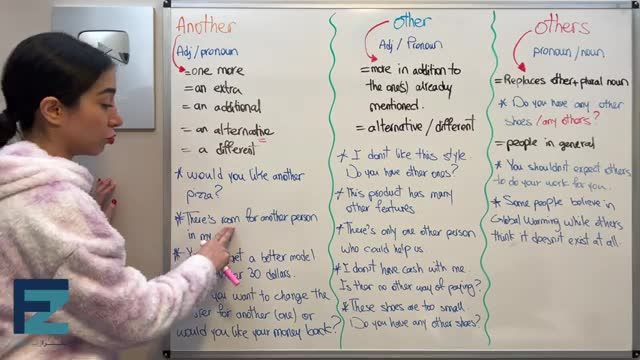 Another
Adj/pronoun
= one more
= an extra
= an additional
= an alternative
= a different
* would you like another
pizza?
* There's room for another person
in my
* get a better model
30 dollars.
you want to change the
for another (one) or
would you like your money back?
other
Adj / Pronoun
= more in addition to
the one(s) already
mentioned.
= alternative / different
* I don't like this style.
Do you have other ones?
* This product has many
other features
* There's only one other person
who could help us.
* I don't have cash with me.
Is ther no other way of paying?
* These shoes are too small.
Do you have any other shoes?
others
pronoun / noun
= Replaces other + plural noun
* Do you have any other
shoes / any others?
= people in general
* You shouldn't expect others
to do your work for you.
* Some people believe in
Global Warming while others
think it doesn't exist at all.
EZ